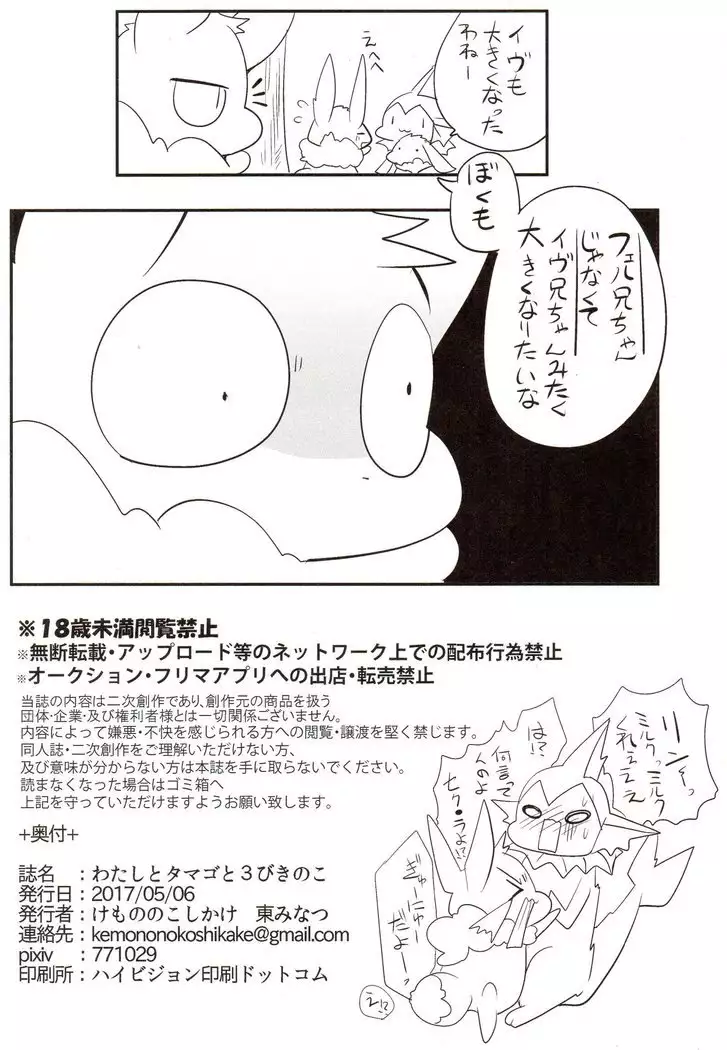 イヴも
大きくなった
わねー
えへへ
ぼくも
フェル兄ちゃん
じゃなくて
イヴ兄ちゃんみたく
大きくなりたいな
※18歳未満閲覧禁止
※無断転載・アップロード等のネットワーク上での配布行為禁止
※オークション・フリマアプリへの出店・転売禁止
当誌の内容は二次創作であり、創作元の商品を扱う
団体・企業・及び権利者様とは一切関係ございません。
内容によって嫌悪・不快を感じられる方への閲覧・譲渡を堅く禁じます。
同人誌・二次創作をご理解いただけない方、
及び意味が分からない方は本誌を手に取らないでください。
読まなくなった場合はゴミ箱へ
上記を守っていただけますようお願い致します。
+奥付+
誌名　：わたしとタマゴと３びきのこ
発行日：2017/05/06
発行者：けもののこしかけ　東みなつ
連絡先：kemononokoshikake@gmail.com
pixiv　：771029
印刷所：ハイビジョン印刷ドットコム
リンーっ
ミルクっミルク
くれぇぇぇ
は!?
何言って
んのよ
セク・ラよ!?
ぎゅーにゅー
だよー
え!?